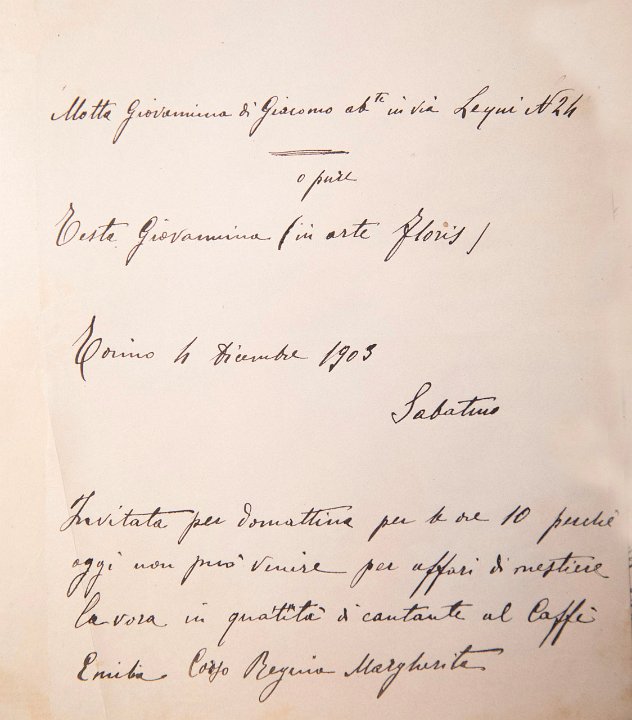 Motta Giovannina di Giacomo ab.te in via Leyni N 24
o pure
Testa Giovannina (in arte Floris)
Torino 4 Dicembre 1903
Sabatino
Invitata per domattina per le ore 10 perchè
oggi non può venire per affari di mestiere
lavora in qualità di cantante al Caffè
Emilia Corso Regina Margherita